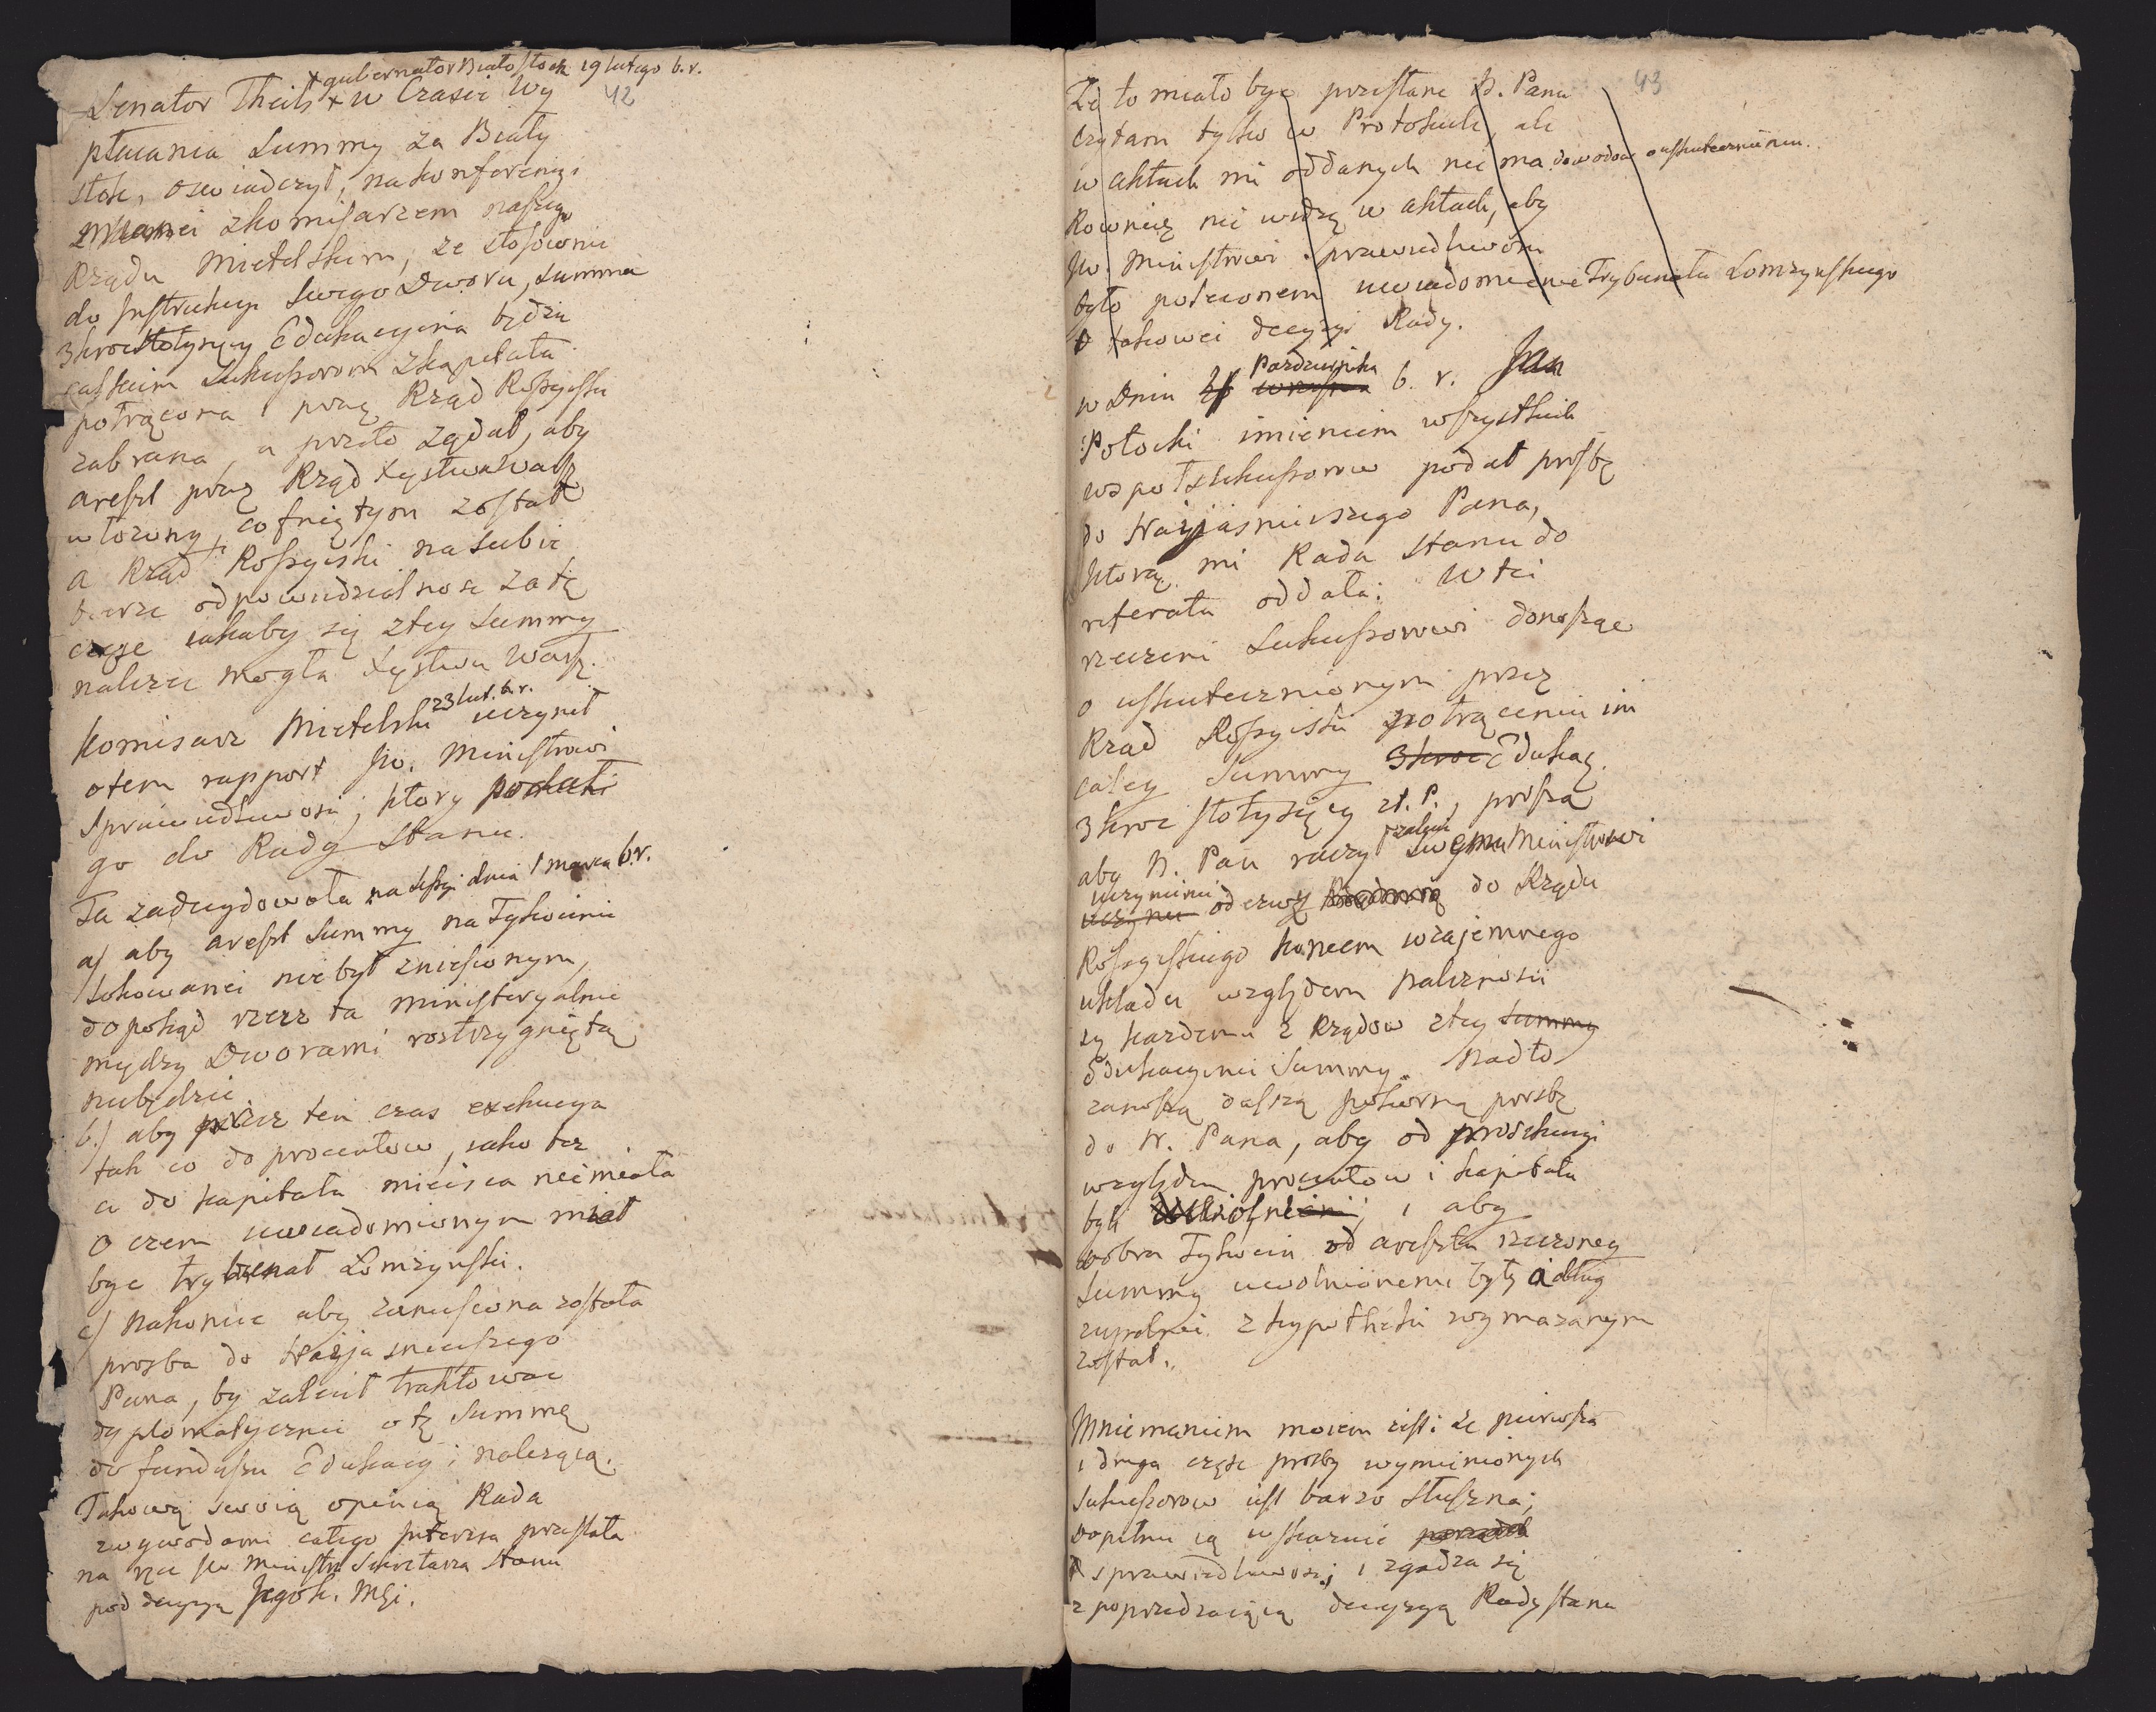 gubernator Białostock 19 lutego b. r.
42
Senator Theils + w Czasie Wy
płacania Summy za Biały
stok, oswiadczył, na konferencyi
mianei z komisarzem naszego
Rządu Mietelskim, ze stosownie
do Instrukcyi Swego Dworu, summa
3kroc stotysięcy Edukacyina będzie
całkiem Sukcessorom z kapitału
potrącona przez Rząd Rossyiski
zabrana, a przeto żądał, aby
areszt przez Rząd Xięstwa Warsz
włozony, cofniętym został
a Rząd Rossyiski na siebie
bierze odpowiedzialnosc za tę
częsc iakaby się z tey Summy
nalezec mogła Xięstwu Warsz.
Komisarz Mietelski 23 lut. b. r. uczynił
o tem rapport Jw. Ministrowi
Sprawiedliwosci, ktory podał
go do Rady Stanu.
Ta zadecydowała na Sessyi dnia 1 marca b. r.
a) aby areszt Summy na Tykocinie
lokowanei nie był zniesionym,
dopokąd rzecz ta ministeryalnie
między Dworami rostrzygniętą
niebędzie
b.) aby przez ten czas exekucya
tak co do procentow, iako tez
co do kapitału mieisca nie miała
O czem uwiadomionym miał
byc trybunał Łomzynski.
c) Nakoniec aby zaniesiona została
prosba do Nayjasnieiszego
Pana, by zalecił traktowac
dyplomatycznie o tę Summę
do funduszu Edukacyi nalezącą.
Takową swoią opinią Rada
z wywodami całego Interesu przesłała
na ręce Jw Ministra Sekretarza Stanu
pod decyzyą Jego K. Msci.
43
Ze to miało byc przesłane N. Panu
czytam tylko w Protokule, ale
w aktach mi oddanych nie ma dowodow o uskutecznieniu.
Rowniez nie widzę w aktach, aby
Jw. Ministrowi Sprawiedliwosci
było poleconem uwiadomienie Trybunału Lomzynskiego
o takowei decyzyi Rady.
w Dniu Pazdziernika b. r. Jan
Potocki imieniem wszystkich
wspołsukcessorow podał prosbę
do Nayjasnieiszego Pana,
ktorą mi Rada Stanu do
referatu oddała: W tei
rzeczeni Sukcessorowie donosząc
o uskutecznionym przez
Rząd Rossyiski potrąceniu im
całey Summy 3kroc Edukac.
3kroc stotysięcy zł. P., proszą
aby N. Pan raczył zalecić swemu Ministrowi
uczynienie odezwy do Rządu
Rossyiskiego koncem wzajemnego
układu względem nalezności
się kazdemu z Rządow z tey Summy
Edukacyinei Summy. Nadto
zanoszą dalszą pokorną prosbę
do N. Pana, aby od prosekucyi
względem procentow i kapitału
byli i aby
dobra Tykocin od aresztu rzeczoney
Summy uwolnionemi były a dług
zupełnie z hypotheki wymazanym
został.
Mniemaniem moiem iest: ze pierwsza
i druga częsc prosby wymienionych
Sukcessorow iest barzo słuszna;
Dopełnic ią wskazuie
sprawiedliwosci; i zgadza się
z poprzedzaiącą decyzyą Rady Stanu